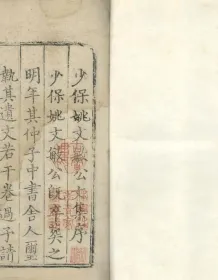 少保姚文敏公文集序
少保姚文敏公既卒葬之
明年其仲子中書舍人璽
執其遺文若干卷過予請